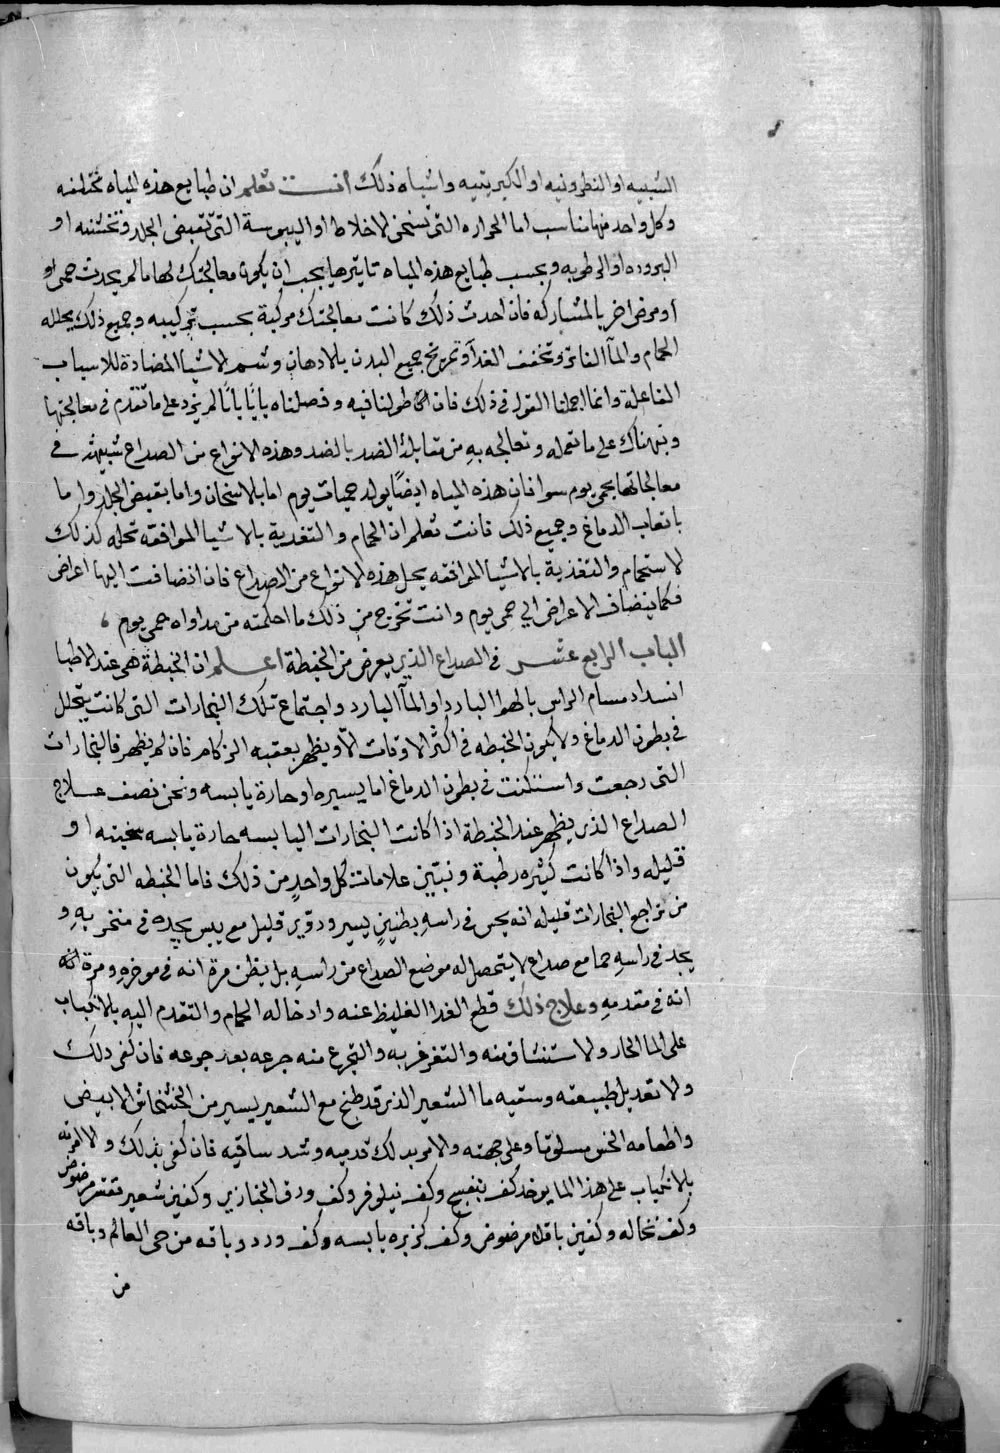 الشبيه او النطرونيه او الكبريتيه واشباه ذلك انت تعلم ان طبايع هذه المياه مختلفه
وكل واحد منها مناسب اما الحراره التى تسخن الاخلاط او اليبوسة التى تقبض الجلد وتخشنه او
البروده او الرطوبه وبحسب طبايع هذه المياه تاثيرها يجب ان يكون معالجتك لها ما لم يحدث حمى او
او مرض اخر بالمشاركه فان احدث ذلك كانت معالجتك مركبة بحسب تركيبه وجميع ذلك يحلله
الحمام والمآ الفاتر وتخفف الغدآ وتمريخ جميع البدن بالادهان وشم الاشيا المضادة للاسباب
الفاعلة وانما اجملنا القول فى ذلك فان طولنا فيه وفصلناه بابًا بابًا لم يزد على ما تقدم فى معالجتها
ونبهناك على ما تعمله وتعالجه به من مقابلة الضد بالضد وهذه الانواع من الصداع شبيهة فى
معالجاتها بحمى يوم سوا فان هذه المياه ايضًا يولد حميات يوم اما بالاسخان واما بقبض الجلد واما
باتعاب الدماغ وجميع ذلك فانت تعلم ان الحمام والتغدية بالاشيا الموافقه تحله كذلك
الاستحمام والتغذية بالاشيا الموافقه يحل هذه الانواع من الصداع فان انضافت اليها اعراض
فكما ينضاف الاعراض الى حمى يوم وانت تخرج من ذلك ما احكمته من مداواه حمى يوم
الباب الرابع عشر فى الصداع الذى يعرض من الخبطة اعلم ان الخبطة هى عند الاطبا
انسداد مسام الراس بالهوا البارد او المآ البارد واجتماع تلك البخارات التى كانت يتحلل
فى بطون الدماغ ولا يكون الخبطه فى اكثر الاوقات الّا ويظهر بعقبه الزكام فان لم يظهر فالبخارات
التى رجعت واستكنت فى بطون الدماغ اما يسيره او حارة يابسه ونحن نصف علاج
الصداع الذى يظهر عند الخبطة اذا كانت البخارات اليابسه حارة يابسه سخينه او
قليله واذا كانت كثيره رطبة ونبيّن علامات كل واحدٍ من ذلك فاما الخبطه التى يكون
من تراجع البخارات قليله انه يحس فى راسهِ بطنينٍ يسير ودوىٍ قليل مع يبس يجده فى منخريه و
يجد فى راسهِ حما مع صداع لا يتحصل له موضع الصداع من راسهِ بل يظن مرة انه فى موخرهِ ومرة
انه فى مقدمهِ وعلاج ذلك قطع الغدا الغليظ عنه وادخاله الحمام والتقدم اليه بالانكباب
على الما الحار والاستنشاق منه والتغرغر به والتجرع منه جرعه بعد جرعه فان كفى ذلك
والا تعديل طبيعته وسقيه ما الشعير الذى قد طبخ مع الشعير يسير من الخشخاش الابيض
واطعامه الخس مسلوقا وعلى جهته والامر بدلك قدميه وشد ساقيه فان كفى بذلك والا امرته
بالانكباب على هذا الما يوخذ كف بنفسج وكف نيلوفر وكف ورق الخبازى وكفين شعير مقشر مرضوض
وكف نخاله وكفين باقلا مرضوض وكف كزبره يابسه وكف ورد وباقه من حى العالم وباقه
من